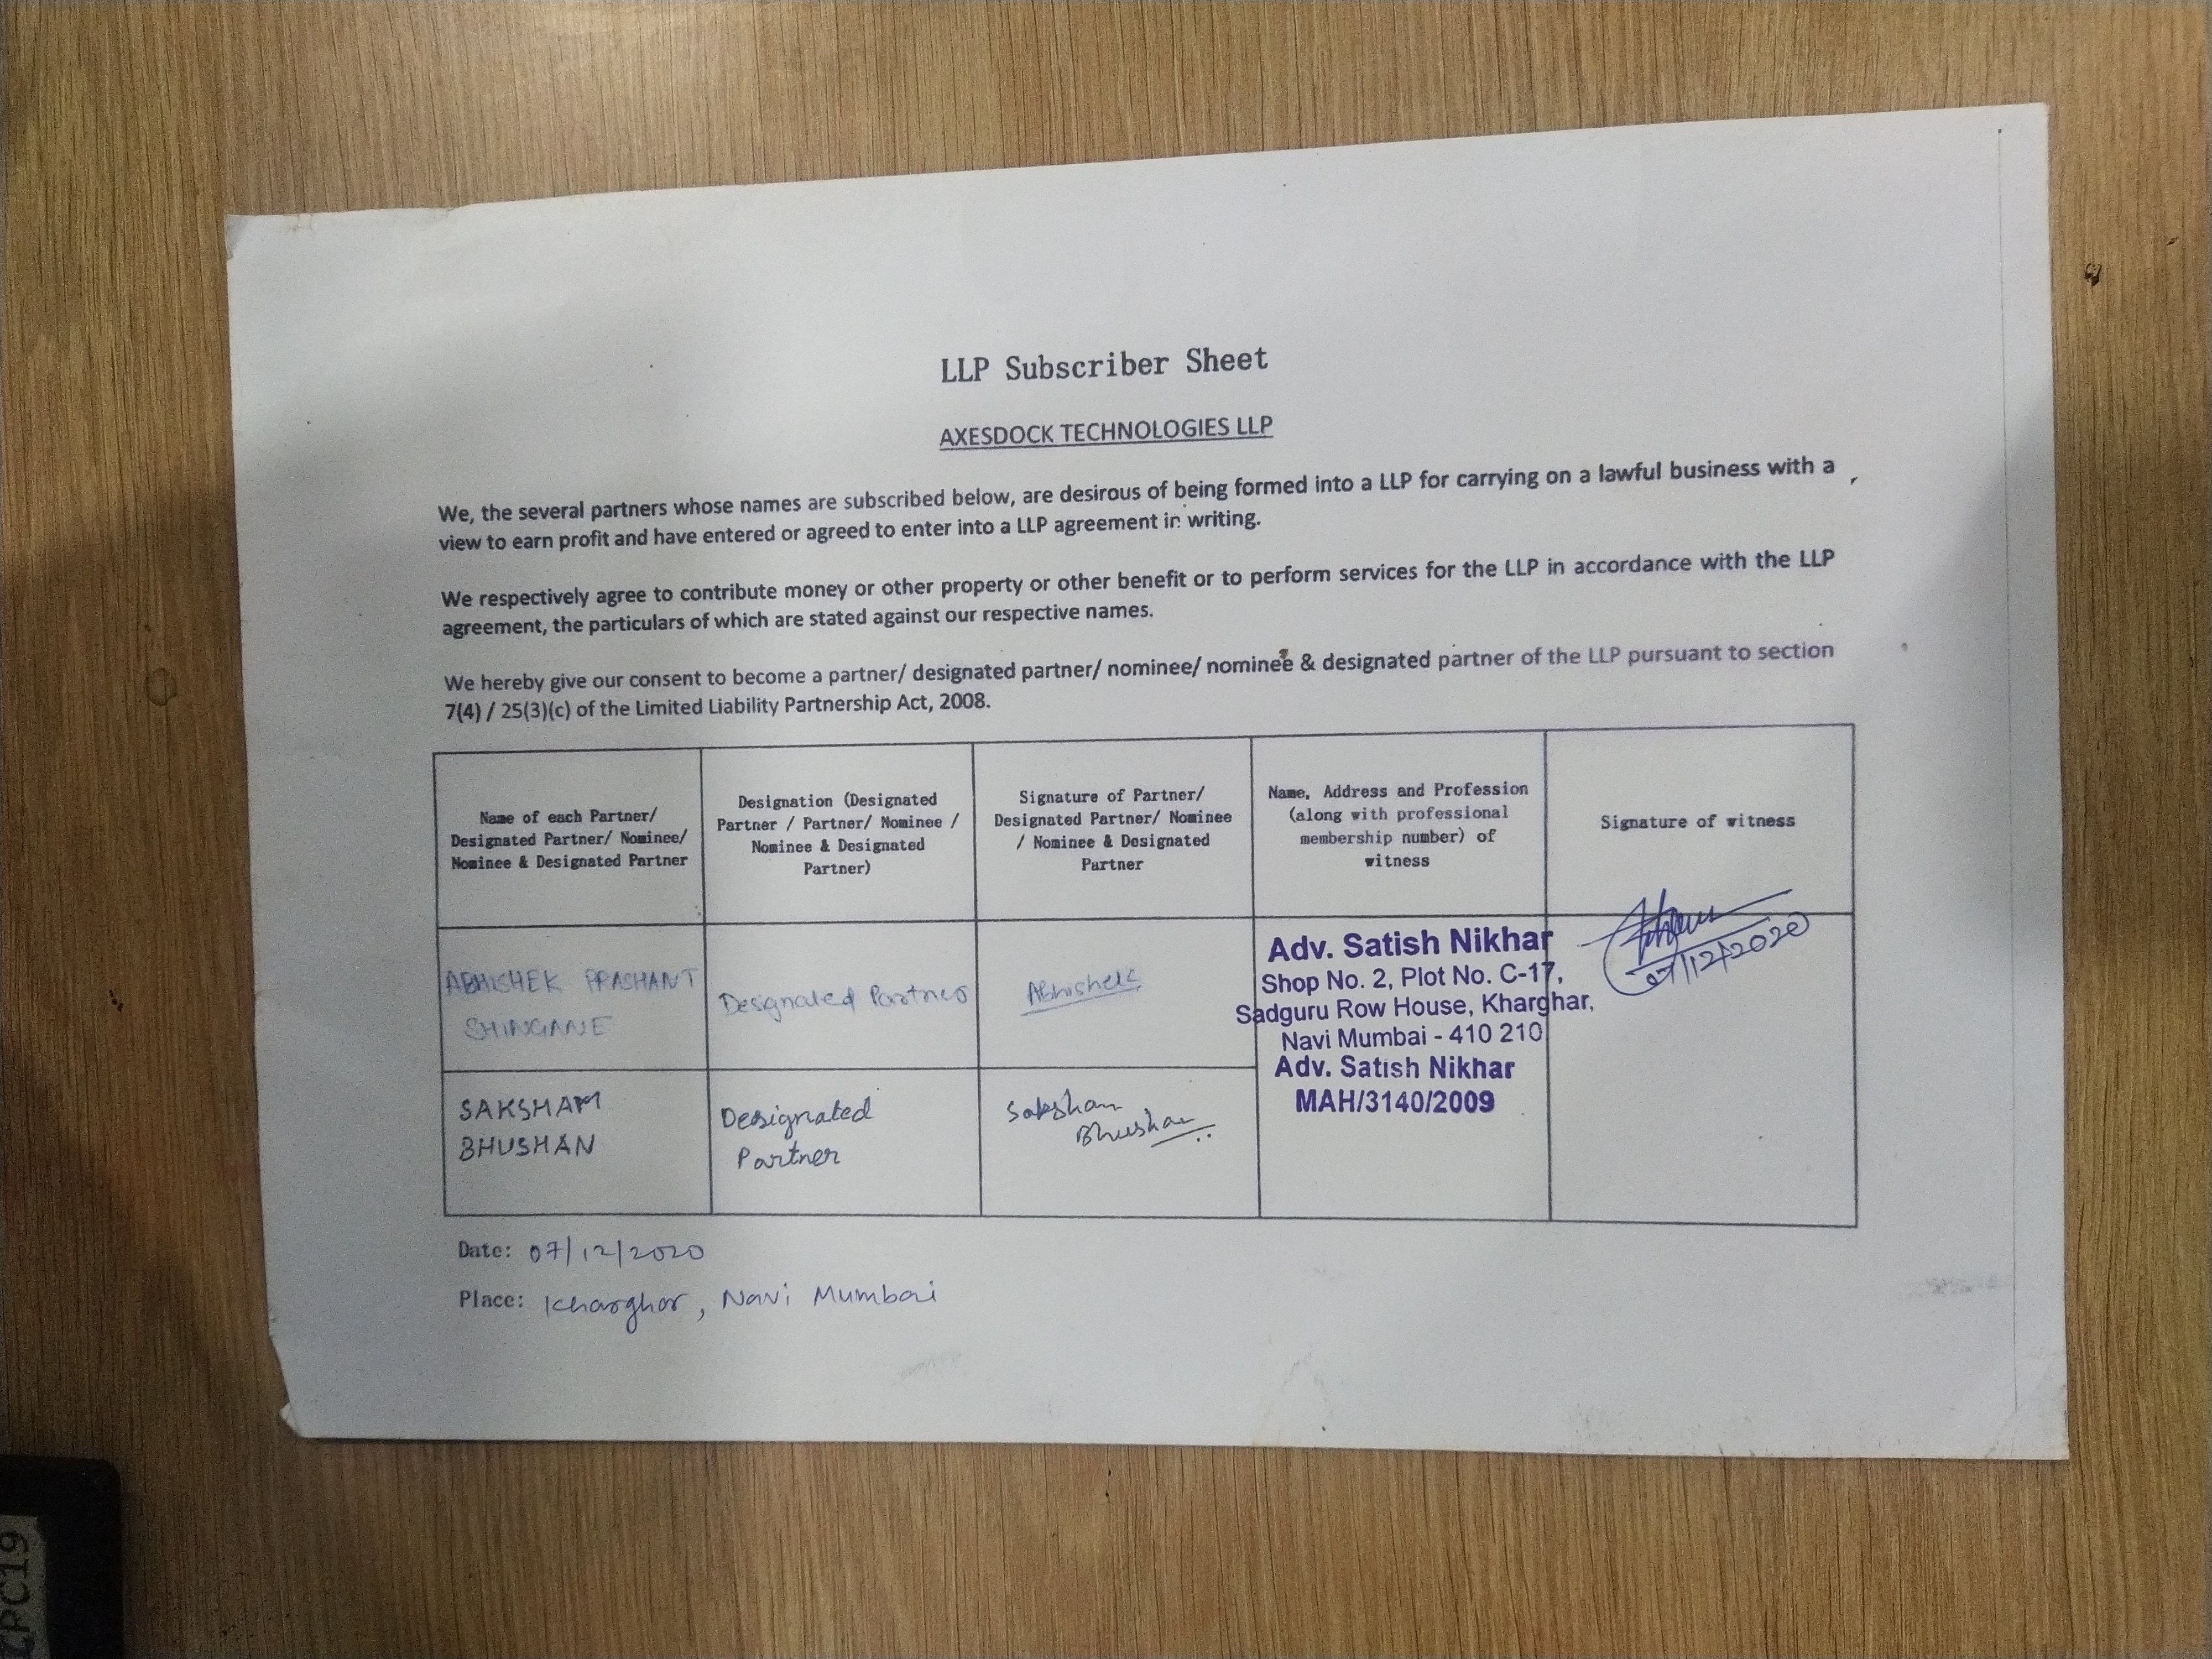 CPC19
LLP Subscriber Sheet
AXESDOCK TECHNOLOGIES LLP
We, the several partners whose names are subscribed below, are desirous of being formed into a LLP for carrying on a lawful business with a
view to earn profit and have entered or agreed to enter into a LLP agreement in writing.
We respectively agree to contribute money or other property or other benefit or to perform services for the LLP in accordance with the LLP
agreement, the particulars of which are stated against our respective names.
We hereby give our consent to become a partner/ designated partner/ nominee/ nominee & designated partner of the LLP pursuant to section
7(4) / 25(3)(c) of the Limited Liability Partnership Act, 2008.
Name of each Partner/
Designated Partner/ Nominee/
Nominee & Designated Partner
Designation (Designated
Partner / Partner/ Nominee /
Nominee & Designated
Partner)
Signature of Partner/
Designated Partner/ Nominee
/ Nominee & Designated
Partner
Name, Address and Profession
(along with professional
membership number) of
witness
Signature of witness
ABHISHEK PRASHANT
SHINGNE
Designated Partner
Abhishek
Adv. Satish Nikhar
Shop No. 2, Plot No. C-17,
Sadguru Row House, Kharghar,
Navi Mumbai - 410 210
Adv. Satish Nikhar
MAH/3140/2009
07/12/2020
SAKSHAM
BHUSHAN
Designated
Partner
Saksham
Bhushan
Date: 07/12/2020
Place: Kharghar, Navi Mumbai